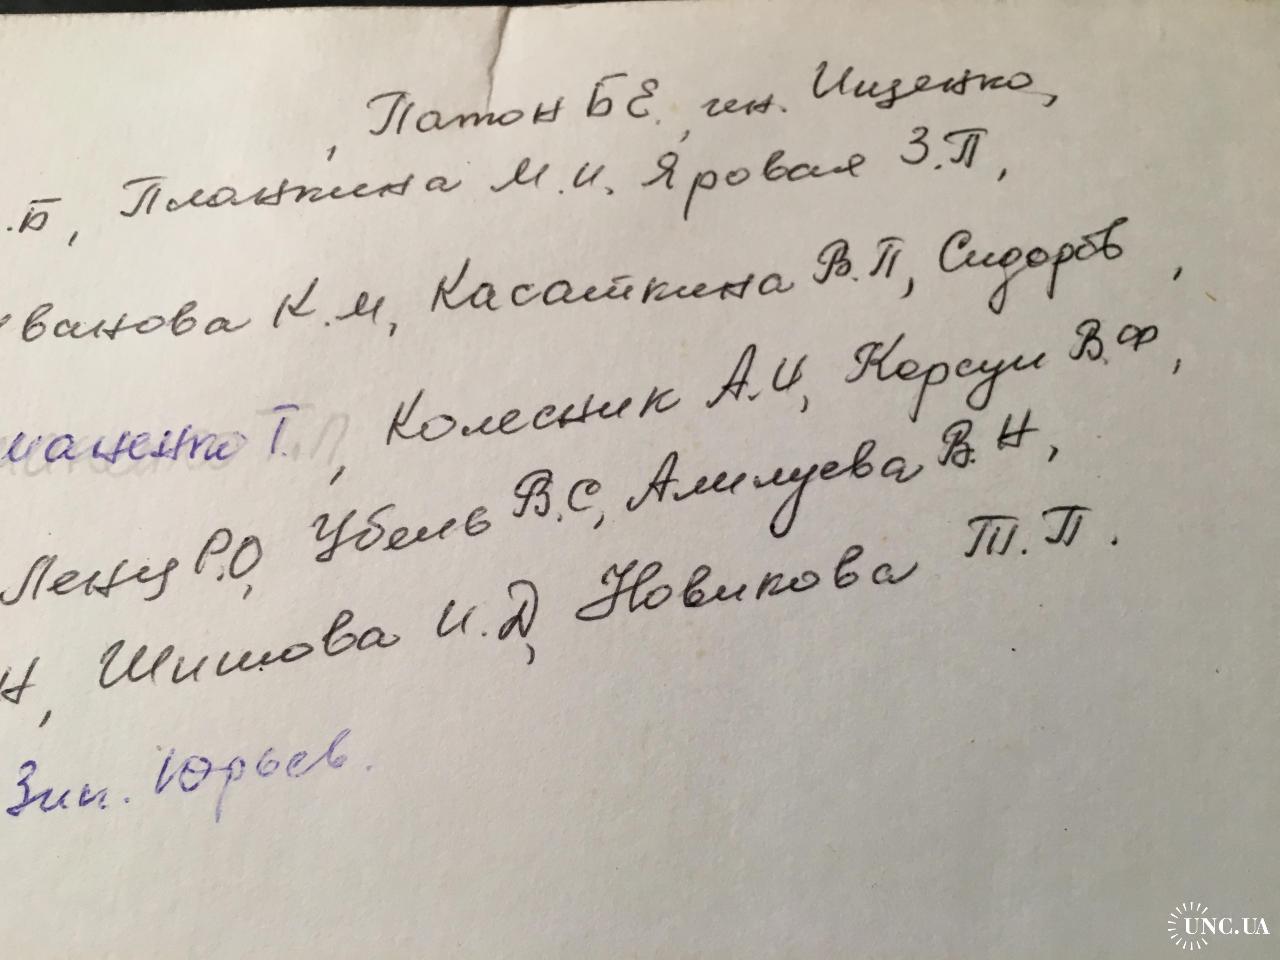 , Патон Б Е., ген. Ищенко,
.Б, Планкина М.И. Яровая З.П,
ванова К.М, Касаткина В.П, Сидоров ,
маненко Т. , Колесник А.И, Корсун В.Ф,
Ленц Р.О, Убель В.С, Алилуева В.Н,
Н, Шишова И.Д, Новикова Т.П.
Зин. Юрьев.
UNC.UA